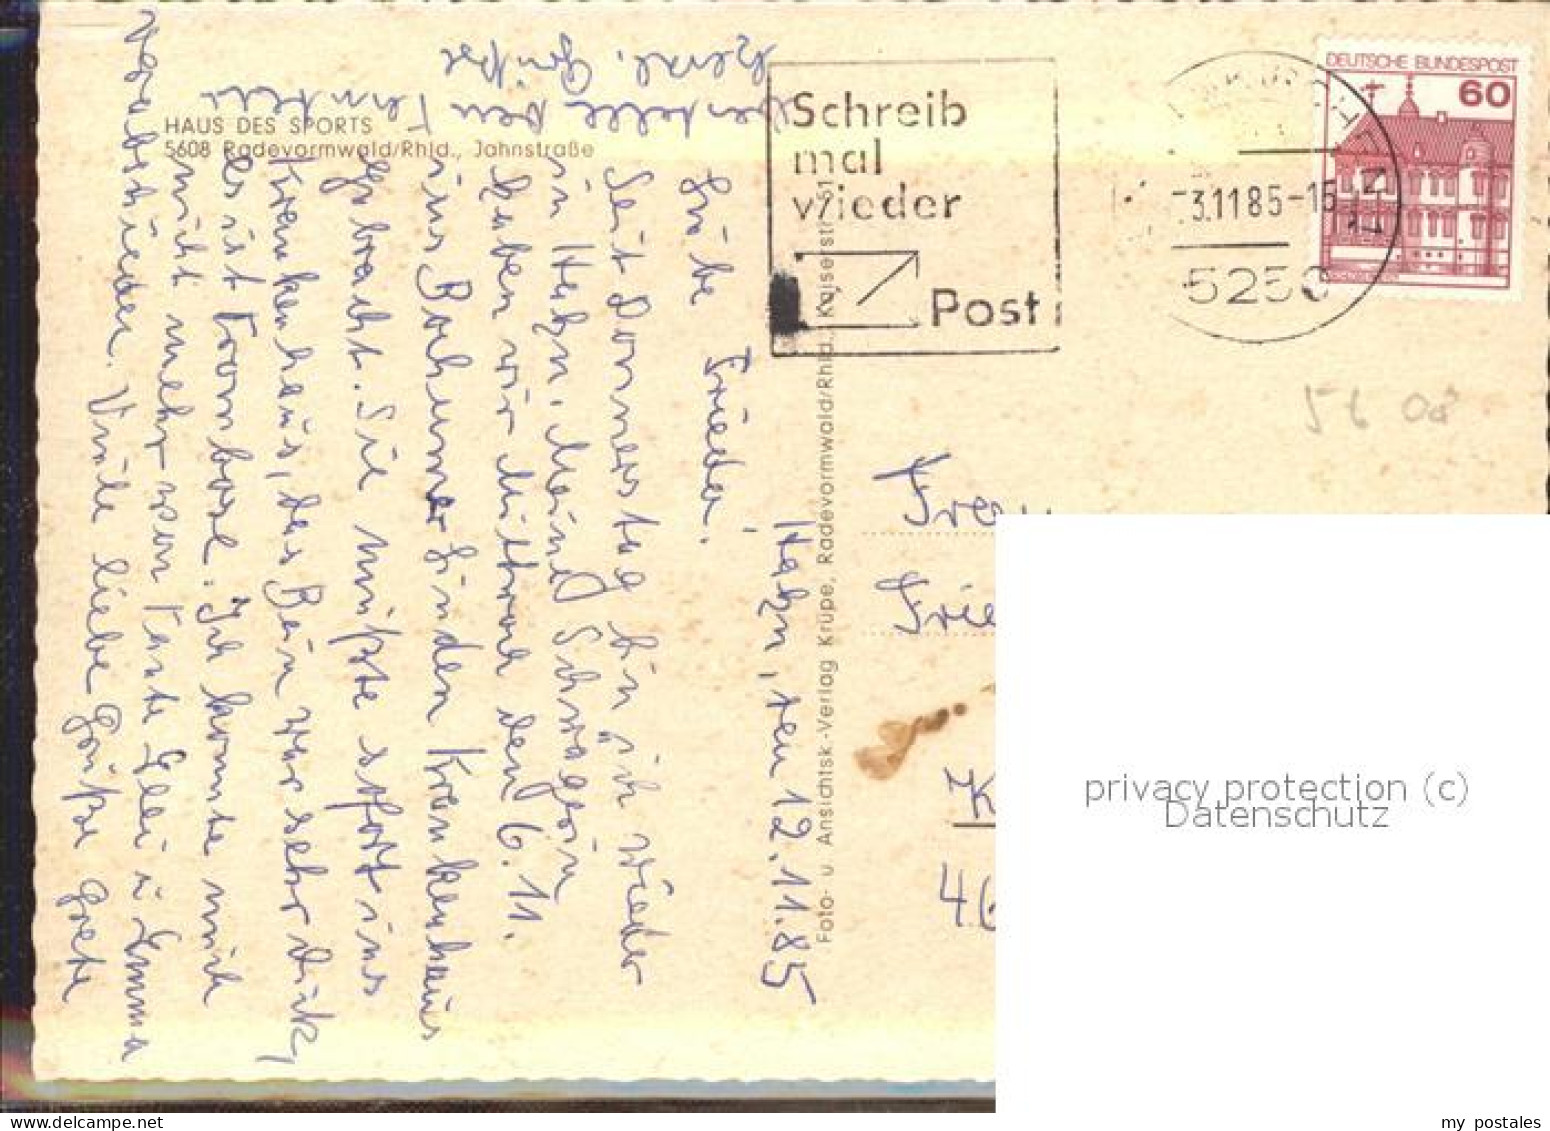 HAUS DES SPORTS
5608 Radevormwald/Rhld., Jahnstraße
Foto- u. Ansichtsk.-Verlag Krupe, Radevormwald/Rhld., Kaiserstr. 51
Schreib
mal
wieder
Post
3.11.85-15
5250
DEUTSCHE BUNDESPOST
60
56
Hahn, den 12.11.85
Liebe Frieda.
Seit Donnerstag bin ich wieder
in Hahn. Meine Schwägerin
haben wir Mittwoch den 6.11.
ins Bochumer Krankenhaus
gebracht. Sie müßte sofort ins
Krankenhaus, das Bein war sehr dick,
es ist Trombose. Ich konnte mich
nicht mehr von Tante Elli u Emma
verabschieden. Viele liebe Grüße Grete
Bestelle den
Herzl. Grüße
Frau
Frie
K
46
privacy protection (c)
Datenschutz
my postales
delcampe.net